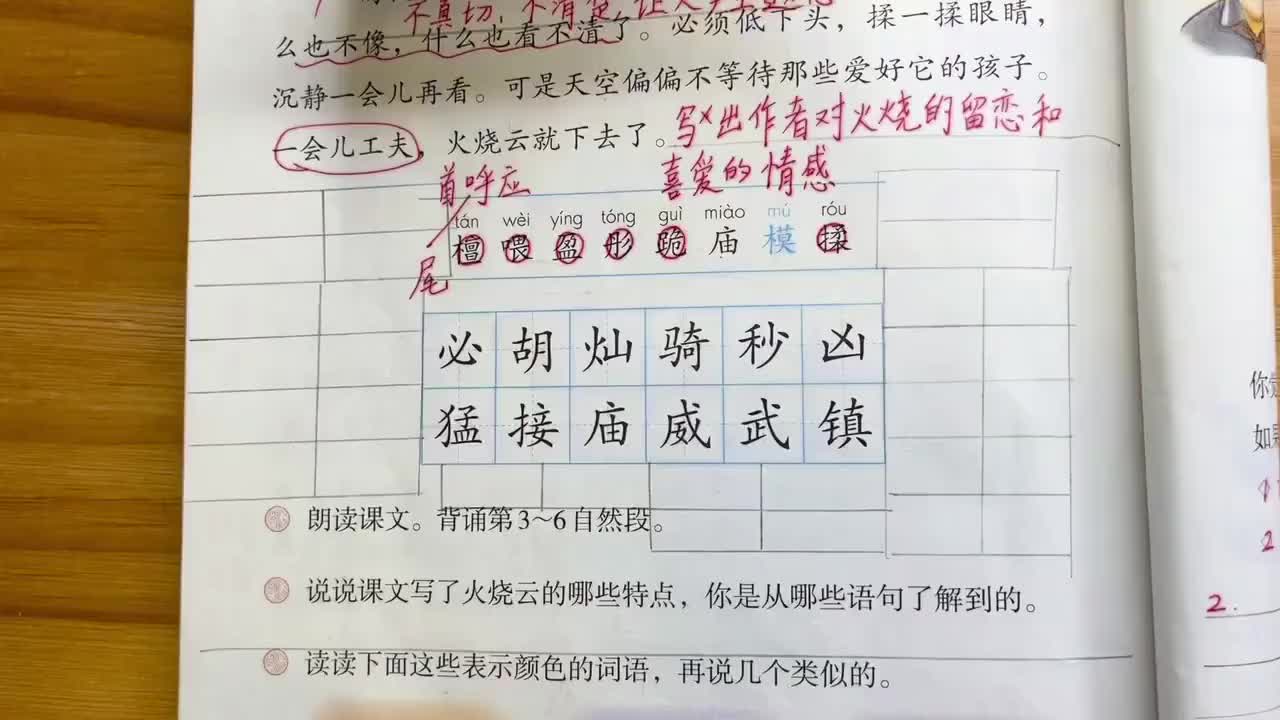 不真切，不清楚，让人
么也不像，什么也看不清了。必须低下头，揉一揉眼睛，
沉静一会儿再看。可是天空偏偏不等待那些爱好它的孩子。
一会儿工夫，火烧云就下去了。写出作者对火烧的留恋和
喜爱的情感
首呼应
尾
tán wèi yíng tóng guì miào mú róu
檀 喂 盈 彤 跪 庙 模 揉
必 胡 灿 骑 秒 凶
猛 接 庙 威 武 镇
朗读课文。背诵第3~6自然段。
说说课文写了火烧云的哪些特点，你是从哪些语句了解到的。
读读下面这些表示颜色的词语，再说几个类似的。
你
如
1
2
2.